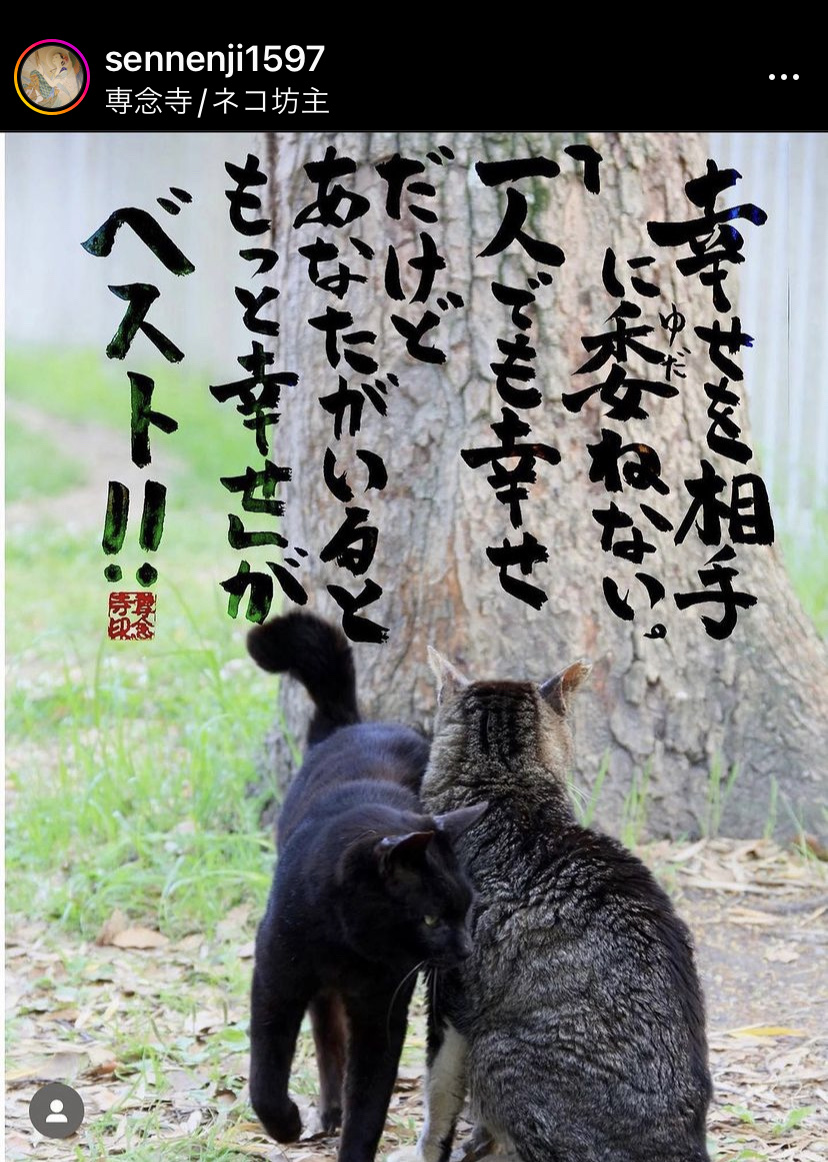 sennenji1597
専念寺/ネコ坊主
幸せを相手
に委ねない。
ゆだ
「
一人でも幸せ
だけど
あなたがいると
もっと幸せ」が
ベスト!!
専念
寺印